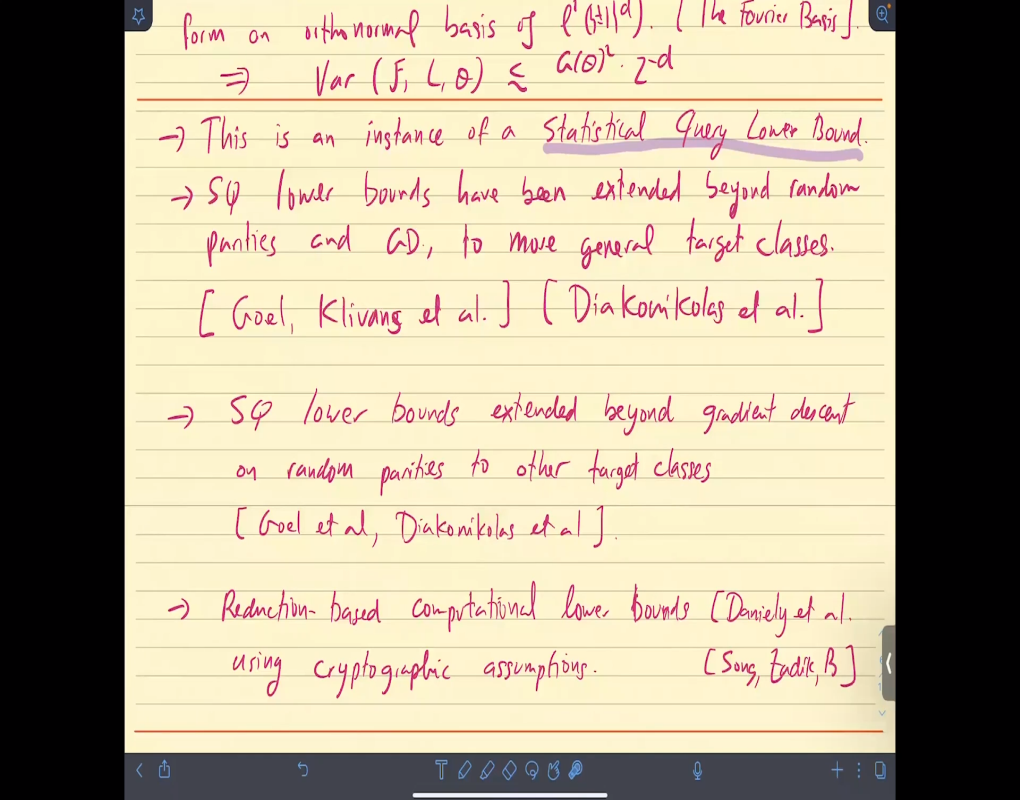 form an orthonormal basis of ℓ²({±1}^d). [The Fourier Basis].
⇒ Var (F, L, θ) ≤ G(θ)² · 2^-d
→ This is an instance of a Statistical Query Lower Bound.
→ SQ lower bounds have been extended beyond random
parities and GD, to more general target classes.
[Goel, Klivans et al.] [Diakonikolas et al.]
→ SQ lower bounds extended beyond gradient descent
on random parities to other target classes
[Goel et al, Diakonikolas et al].
→ Reduction-based computational lower bounds [Daniely et al.
using cryptographic assumptions. [Song, Zadik, B]
T